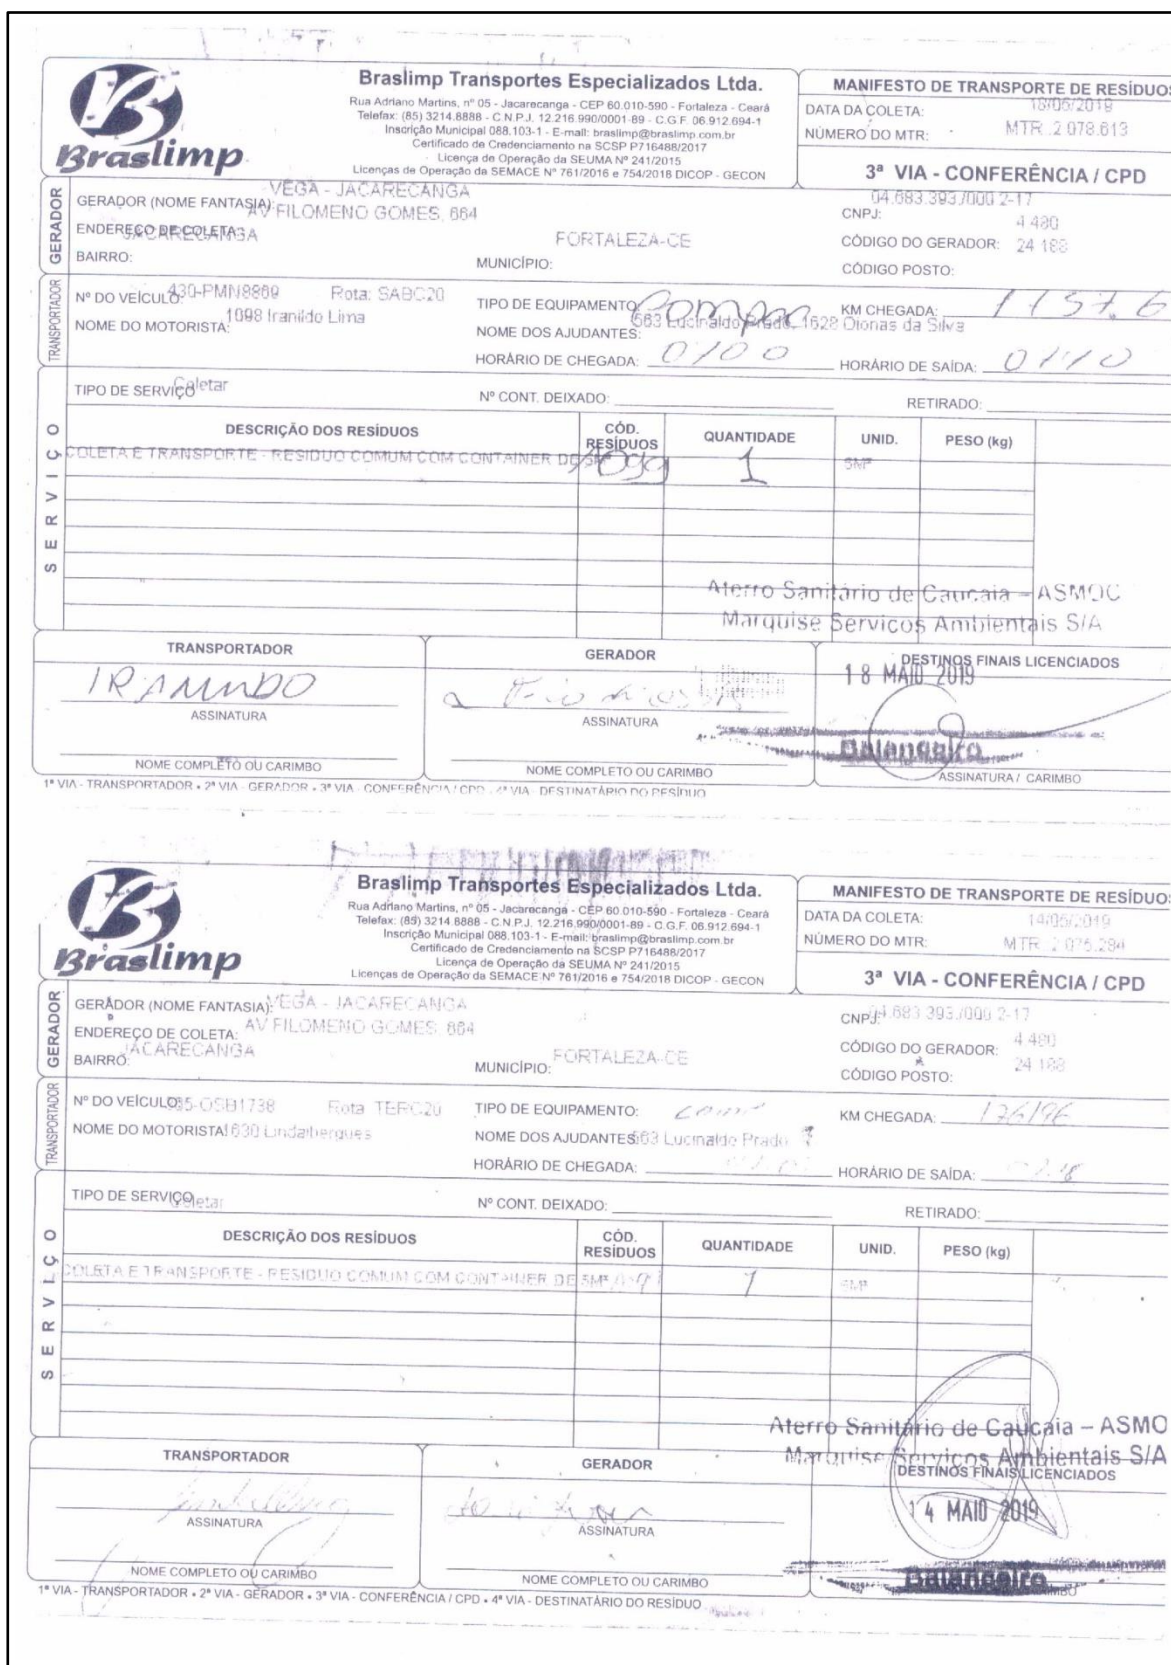 Braslimp
Braslimp Transportes Especializados Ltda.
Rua Adriano Martins, nº 05 - Jacarecanga - CEP 60.010-590 - Fortaleza - Ceará
Telefax: (85) 3214.8888 - C.N.P.J. 12.216.990/0001-89 - C.G.F. 06.912.694-1
Inscrição Municipal 088.103-1 - E-mail: braslimp@braslimp.com.br
Certificado de Credenciamento na SCSP P716488/2017
Licença de Operação da SEUMA Nº 241/2015
Licenças de Operação da SEMACE Nº 761/2016 e 754/2018 DICOP - GECON
MANIFESTO DE TRANSPORTE DE RESÍDUOS
DATA DA COLETA: 18/05/2019
NÚMERO DO MTR: MTR .2.078.613
3ª VIA - CONFERÊNCIA / CPD
GERADOR
GERADOR (NOME FANTASIA): VEGA - JACARECANGA
ENDEREÇO DE COLETA: AV FILOMENO GOMES, 664
BAIRRO: JACARECANGA
MUNICÍPIO: FORTALEZA-CE
CNPJ: 04.683.393./000 2-17
CÓDIGO DO GERADOR: 4.480
CÓDIGO POSTO: 24.188
TRANSPORTADOR
Nº DO VEÍCULO: 430-PMN8869 Rota: SABC20
NOME DO MOTORISTA: 1098 Iranildo Lima
TIPO DE EQUIPAMENTO: Compac
NOME DOS AJUDANTES: 563 Lucinaldo Prado, 1628 Dionas da Silva
HORÁRIO DE CHEGADA: 0100
KM CHEGADA: 1157.6
HORÁRIO DE SAÍDA: 0110
SERVIÇO
TIPO DE SERVIÇO Coletar
Nº CONT. DEIXADO:
RETIRADO:
DESCRIÇÃO DOS RESÍDUOS CÓD. RESÍDUOS QUANTIDADE UNID. PESO (kg)
COLETA E TRANSPORTE - RESIDUO COMUM COM CONTAINER DE 5M³ 1 5M³
Aterro Sanitário de Caucaia - ASMOC
Marquise Servicos Ambientais S/A
TRANSPORTADOR GERADOR DESTINOS FINAIS LICENCIADOS
18 MAIO 2019
IRANILDO
ASSINATURA ASSINATURA
Balanceiro
NOME COMPLETO OU CARIMBO NOME COMPLETO OU CARIMBO ASSINATURA / CARIMBO
1ª VIA - TRANSPORTADOR • 2ª VIA - GERADOR • 3ª VIA - CONFERÊNCIA / CPD • 4ª VIA - DESTINATÁRIO DO RESÍDUO
Braslimp
Braslimp Transportes Especializados Ltda.
Rua Adriano Martins, nº 05 - Jacarecanga - CEP 60.010-590 - Fortaleza - Ceará
Telefax: (85) 3214.8888 - C.N.P.J. 12.216.990/0001-89 - C.G.F. 06.912.694-1
Inscrição Municipal 088.103-1 - E-mail: braslimp@braslimp.com.br
Certificado de Credenciamento na SCSP P716488/2017
Licença de Operação da SEUMA Nº 241/2015
Licenças de Operação da SEMACE Nº 761/2016 e 754/2018 DICOP - GECON
MANIFESTO DE TRANSPORTE DE RESÍDUO
DATA DA COLETA: 14/05/2019
NÚMERO DO MTR: MTR .2.075.284
3ª VIA - CONFERÊNCIA / CPD
GERADOR
GERADOR (NOME FANTASIA): VEGA - JACARECANGA
ENDEREÇO DE COLETA: AV FILOMENO GOMES, 664
BAIRRO: JACARECANGA
MUNICÍPIO: FORTALEZA-CE
CNPJ: 04.683.393./000 2-17
CÓDIGO DO GERADOR: 4.480
CÓDIGO POSTO: 24.188
TRANSPORTADOR
Nº DO VEÍCULO: -OSB1738 Rota: TERC20
NOME DO MOTORISTA: 1630 Lindarbergues
TIPO DE EQUIPAMENTO:
NOME DOS AJUDANTES: 563 Lucinaldo Prado
HORÁRIO DE CHEGADA:
KM CHEGADA: 126196
HORÁRIO DE SAÍDA:
SERVIÇO
TIPO DE SERVIÇO Coletar
Nº CONT. DEIXADO:
RETIRADO:
DESCRIÇÃO DOS RESÍDUOS CÓD. RESÍDUOS QUANTIDADE UNID. PESO (kg)
COLETA E TRANSPORTE - RESIDUO COMUM COM CONTAINER DE 5M³ 1 5M³
Aterro Sanitário de Caucaia - ASMO
Marquise Serviços Ambientais S/A
TRANSPORTADOR GERADOR DESTINOS FINAIS LICENCIADOS
14 MAIO 2019
ASSINATURA ASSINATURA
Balanceiro
NOME COMPLETO OU CARIMBO NOME COMPLETO OU CARIMBO
1ª VIA - TRANSPORTADOR • 2ª VIA - GERADOR • 3ª VIA - CONFERÊNCIA / CPD • 4ª VIA - DESTINATÁRIO DO RESÍDUO